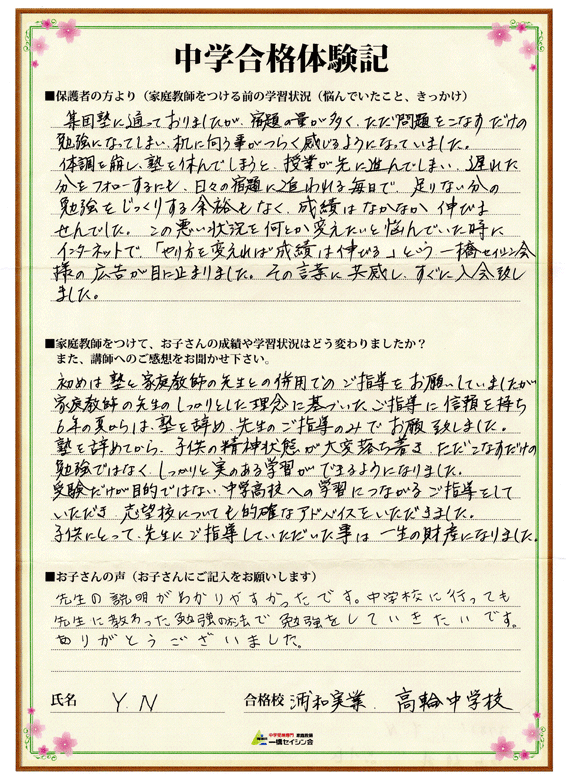 中学合格体験記
■保護者の方より（家庭教師をつける前の学習状況（悩んでいたこと、きっかけ）
集団塾に通っておりましたが、宿題の量が多く、ただ問題をこなすだけの
勉強になってしまい、机に向う事がつらく感じるようになっていました。
体調を崩し、塾を休んでしまうと、授業が先に進んでしまい、遅れた
分をフォローするにも、日々の宿題に追われる毎日で、足りない分の
勉強をじっくりする余裕もなく、成績はなかなか伸びま
せんでした。この悪い状況を何とか変えたいと悩んでいた時に
インターネットで「やり方を変えれば成績は伸びる」という一橋セイシン会
様の広告が目に止まりました。その言葉に共感し、すぐに入会致し
ました。
■家庭教師をつけて、お子さんの成績や学習状況はどう変わりましたか？
また、講師へのご感想をお聞かせ下さい。
初めは塾と家庭教師の先生との併用でのご指導をお願いしていましたが
家庭教師の先生のしっかりとした理念に基づいたご指導に信頼を持ち
6年の夏からは、塾を辞め、先生のご指導のみでお願致しました。
塾を辞めてから、子供の精神状態が大変落ち着き、ただこなすだけの
勉強ではなく、しっかりと実のある学習ができるようになりました。
受験だけが目的ではない、中学高校への学習につながるご指導をして
いただき、志望校についても的確なアドバイスをいただきました。
子供にとって、先生にご指導していただいた事は一生の財産になりました。
■お子さんの声（お子さんにご記入をお願いします）
先生の説明がわかりやすかったです。中学校に行っても
先生に教わった勉強の方法で勉強をしていきたいです。
ありがとうございました。
氏名 Y.N 合格校 浦和実業、高輪中学校
中学受験専門 家庭教師
一橋セイシン会